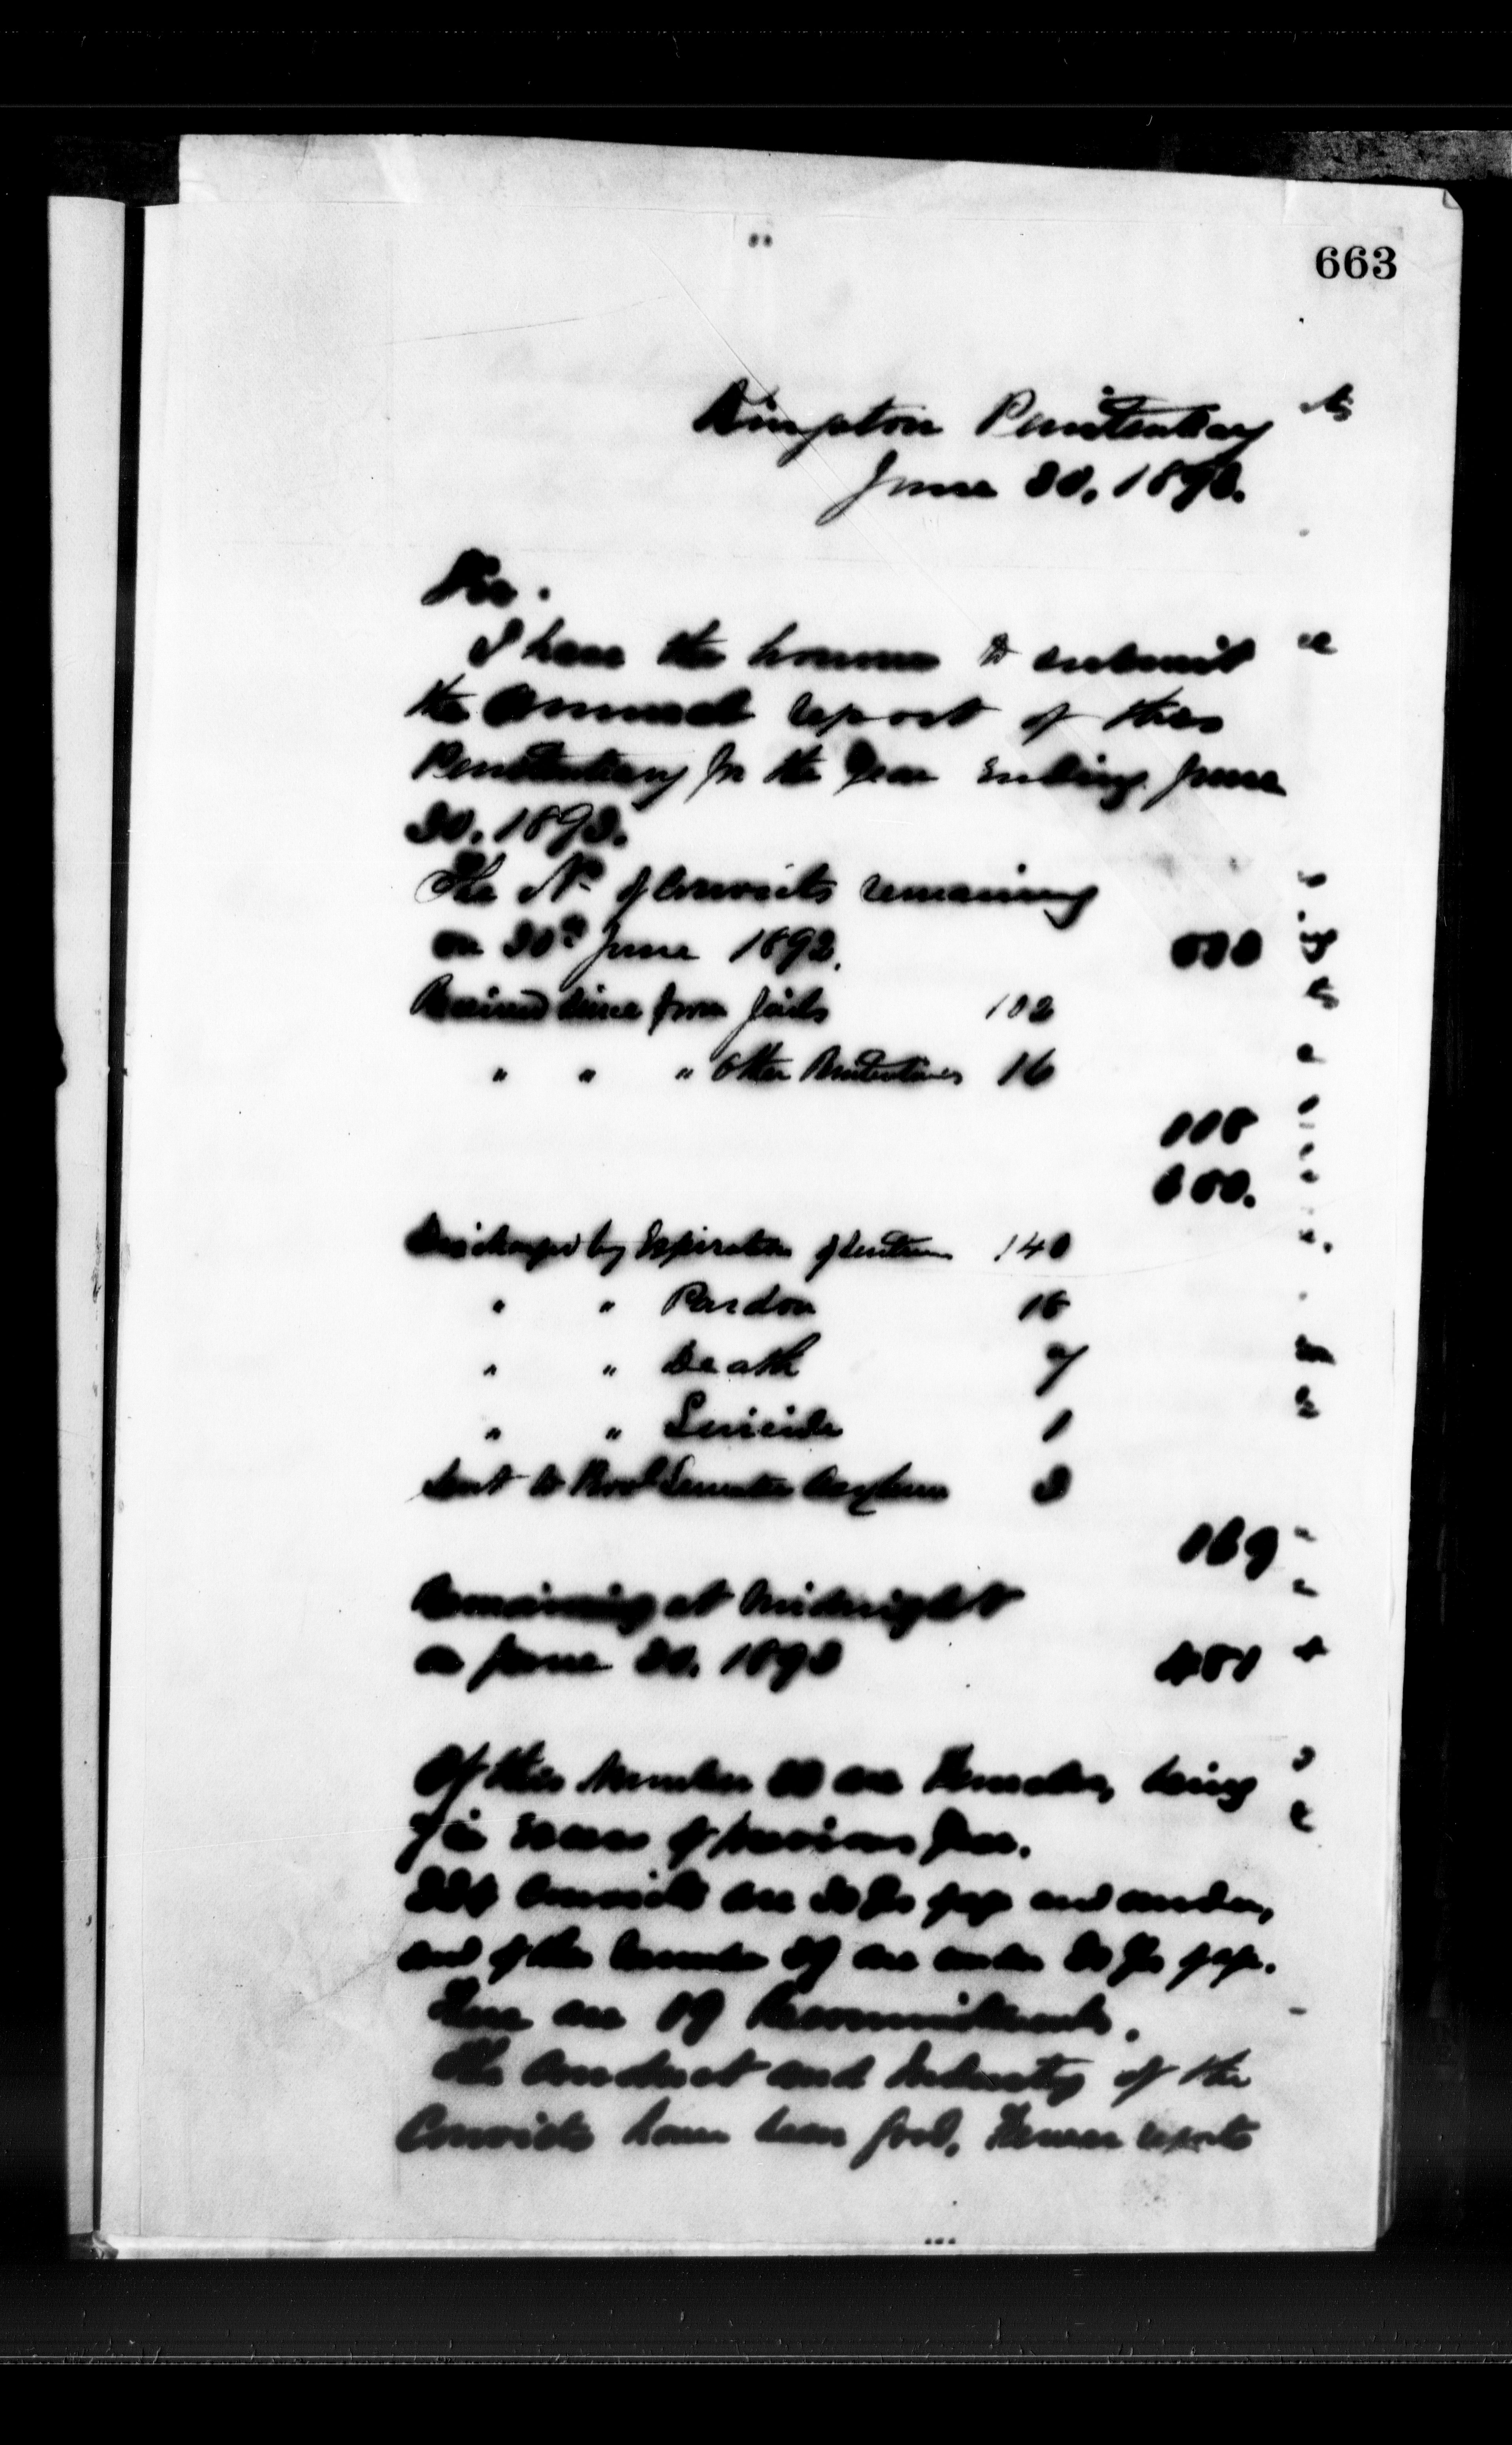 663
Kingston Penitentiary
June 30, 1893.
Sir.
I have the honour to submit
the Annual report of this
Penitentiary for the Year Ending June
30. 1893.
The No. of Convicts remaining
on 30th June 1892.
Received since from Jails 102
" " " Other Penitentiaries 16
118
Discharged by Expiration of Sentence 140
" " Pardon 18
" " Death 7
" " Suicide 1
Sent to Provl Lunatic Asylum 3
169
Remaining at Midnight
on June 30. 1893 481
Of this Number are Females, being
7 in Excess of previous Year.
Convicts are 30 Yrs of age and under,
and of this number are under 20 Yrs of age.
There are Recommittments.
The Conduct and Industry of the
Convicts have been good, Fewer reports